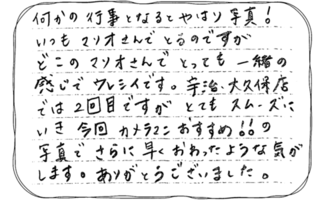 何かの行事となるとやはり写真!
いつもマリオさんでとるのですが
どこのマリオさんでとっても一緒の
感じでウレシイです。宇治・大久保店
では2回目ですがとてもスムーズに
いき今回カメラマンおすすめ!!の
写真でさらに早くおわったような気が
します。ありがとうございました。